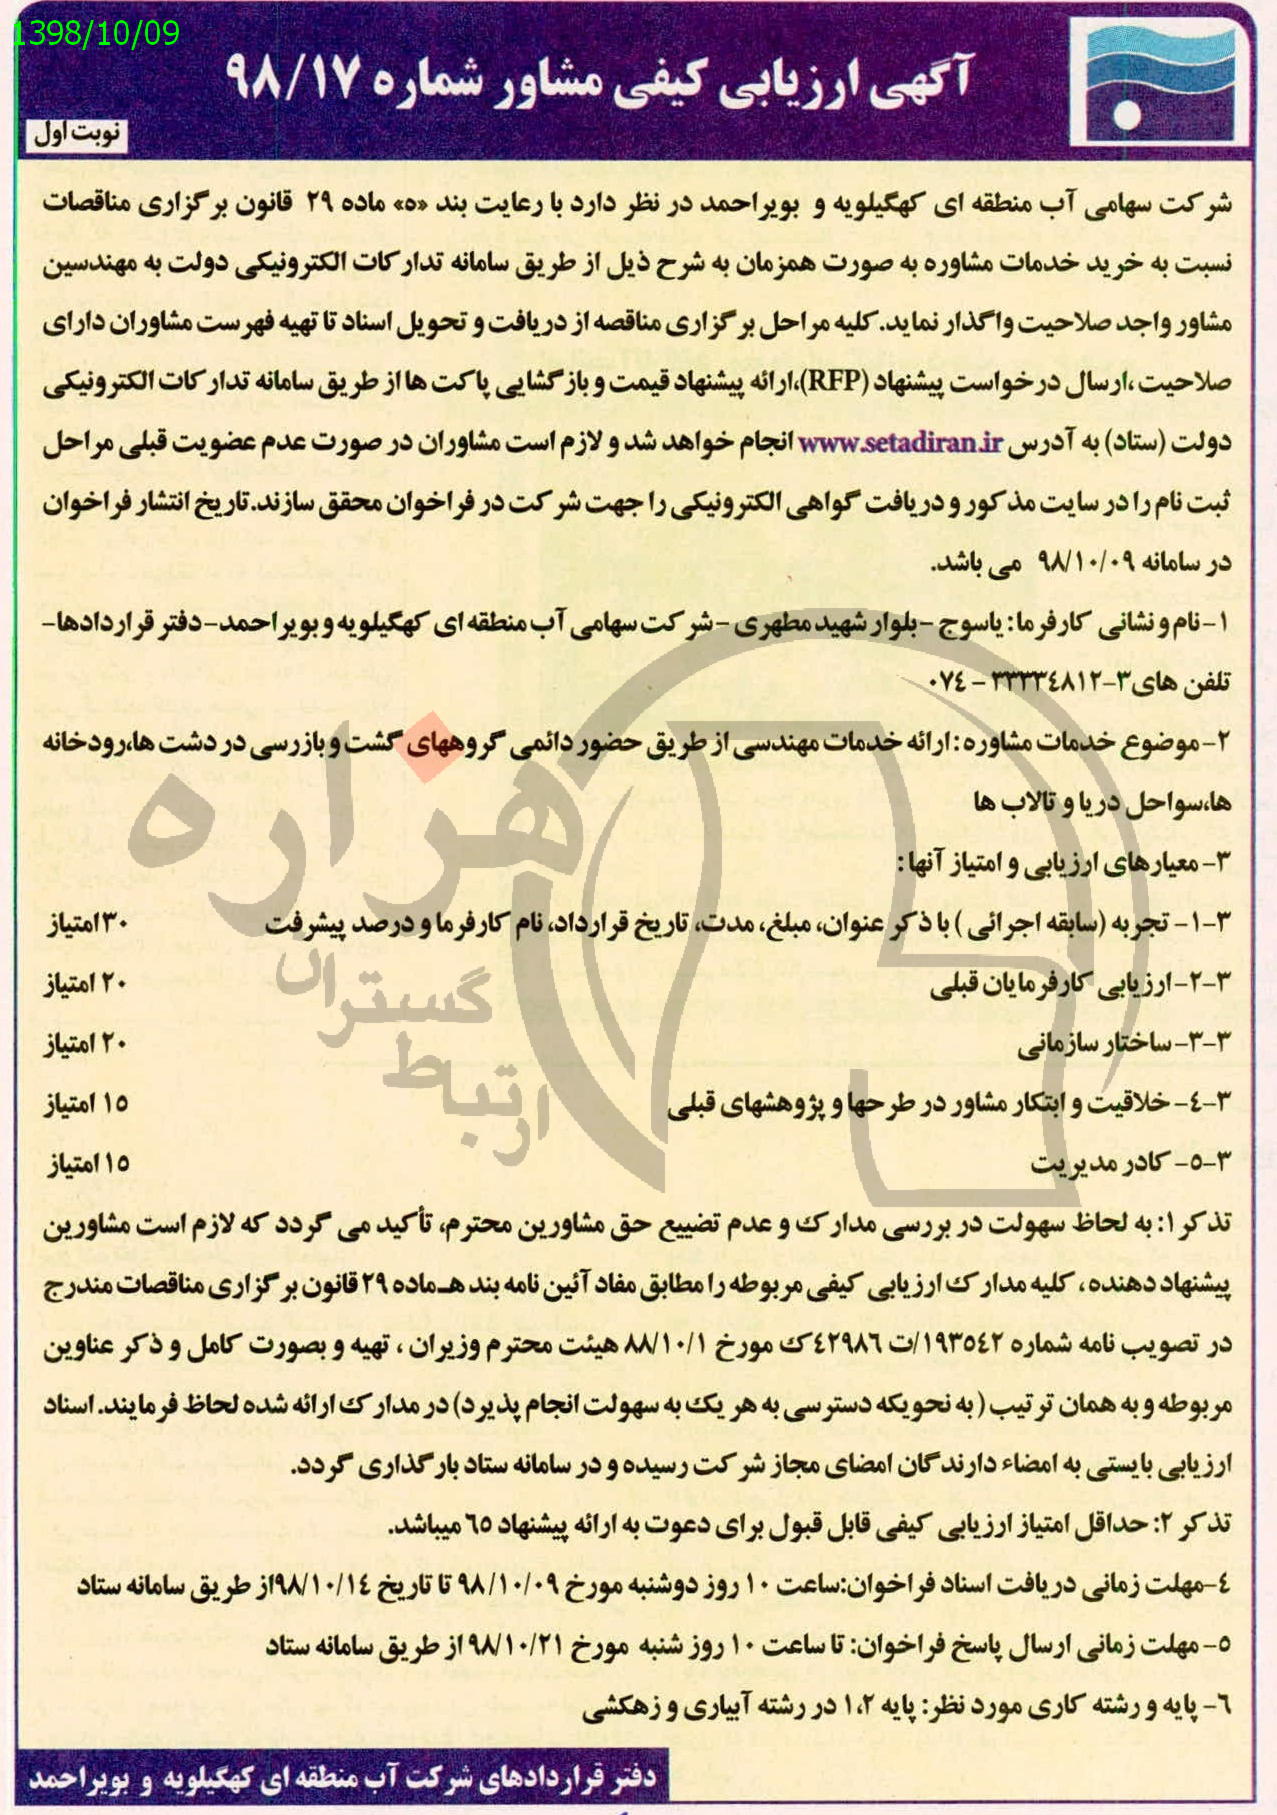 1398/10/09
آگهی ارزیابی کیفی مشاور شماره ۹۸/۱۷
نوبت اول
شرکت سهامی آب منطقه ای کهگیلویه و بویراحمد در نظر دارد با رعایت بند «ه» ماده ۲۹ قانون برگزاری مناقصات
نسبت به خرید خدمات مشاوره به صورت همزمان به شرح ذیل از طریق سامانه تدارکات الکترونیکی دولت به مهندسین
مشاور واجد صلاحیت واگذار نماید. کلیه مراحل برگزاری مناقصه از دریافت و تحویل اسناد تا تهیه فهرست مشاوران دارای
صلاحیت ،ارسال درخواست پیشنهاد (RFP)،ارائه پیشنهاد قیمت و بازگشایی پاکت ها از طریق سامانه تدارکات الکترونیکی
دولت (ستاد) به آدرس www.setadiran.ir انجام خواهد شد و لازم است مشاوران در صورت عدم عضویت قبلی مراحل
ثبت نام را در سایت مذکور و دریافت گواهی الکترونیکی را جهت شرکت در فراخوان محقق سازند. تاریخ انتشار فراخوان
در سامانه ۹۸/۱۰/۰۹ می باشد.
۱- نام و نشانی کارفرما: یاسوج - بلوار شهید مطهری - شرکت سهامی آب منطقه ای کهگیلویه و بویراحمد- دفتر قراردادها-
تلفن های۳-۳۳۳۳٤۸۱۲ - ۰۷٤
۲- موضوع خدمات مشاوره: ارائه خدمات مهندسی از طریق حضور دائمی گروههای گشت و بازرسی در دشت ها،رودخانه
ها،سواحل دریا و تالاب ها
۳- معیارهای ارزیابی و امتیاز آنها:
۳-۱- تجربه (سابقه اجرائی ) با ذکر عنوان، مبلغ، مدت، تاریخ قرارداد، نام کارفرما و درصد پیشرفت ۳۰امتیاز
۳-۲- ارزیابی کارفرمایان قبلی ۲۰ امتیاز
۳-۳- ساختار سازمانی ۲۰ امتیاز
۳-٤- خلاقیت و ابتکار مشاور در طرحها و پژوهشهای قبلی ۱۵ امتیاز
۳-۵- کادر مدیریت ۱۵ امتیاز
تذکر ۱: به لحاظ سهولت در بررسی مدارک و عدم تضییع حق مشاورین محترم، تأکید می گردد که لازم است مشاورین
پیشنهاد دهنده ، کلیه مدارک ارزیابی کیفی مربوطه را مطابق مفاد آئین نامه بند هـ ماده ۲۹ قانون برگزاری مناقصات مندرج
در تصویب نامه شماره ۱۹۳۵٤۲/ت ٤۲۹۸٦ک مورخ ۸۸/۱۰/۱ هیئت محترم وزیران ، تهیه و بصورت کامل و ذکر عناوین
مربوطه و به همان ترتیب ( به نحویکه دسترسی به هر یک به سهولت انجام پذیرد) در مدارک ارائه شده لحاظ فرمایند. اسناد
ارزیابی بایستی به امضاء دارندگان امضای مجاز شرکت رسیده و در سامانه ستاد بارگذاری گردد.
تذکر ۲: حداقل امتیاز ارزیابی کیفی قابل قبول برای دعوت به ارائه پیشنهاد ٦۵ میباشد.
٤-مهلت زمانی دریافت اسناد فراخوان:ساعت ۱۰ روز دوشنبه مورخ ۹۸/۱۰/۰۹ تا تاریخ ۹۸/۱۰/۱٤از طریق سامانه ستاد
۵- مهلت زمانی ارسال پاسخ فراخوان: تا ساعت ۱۰ روز شنبه مورخ ۹۸/۱۰/۲۱ از طریق سامانه ستاد
٦- پایه و رشته کاری مورد نظر: پایه ۱،۲ در رشته آبیاری و زهکشی
دفتر قراردادهای شرکت آب منطقه ای کهگیلویه و بویراحمد
هزاره
گستران
ارتباط